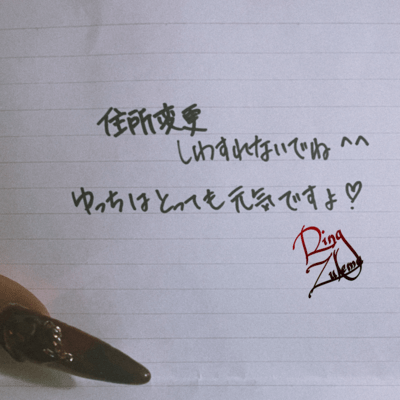 住所変更
しわすれないでね^^
ゆっちはとっても元気ですよ♡
Ring